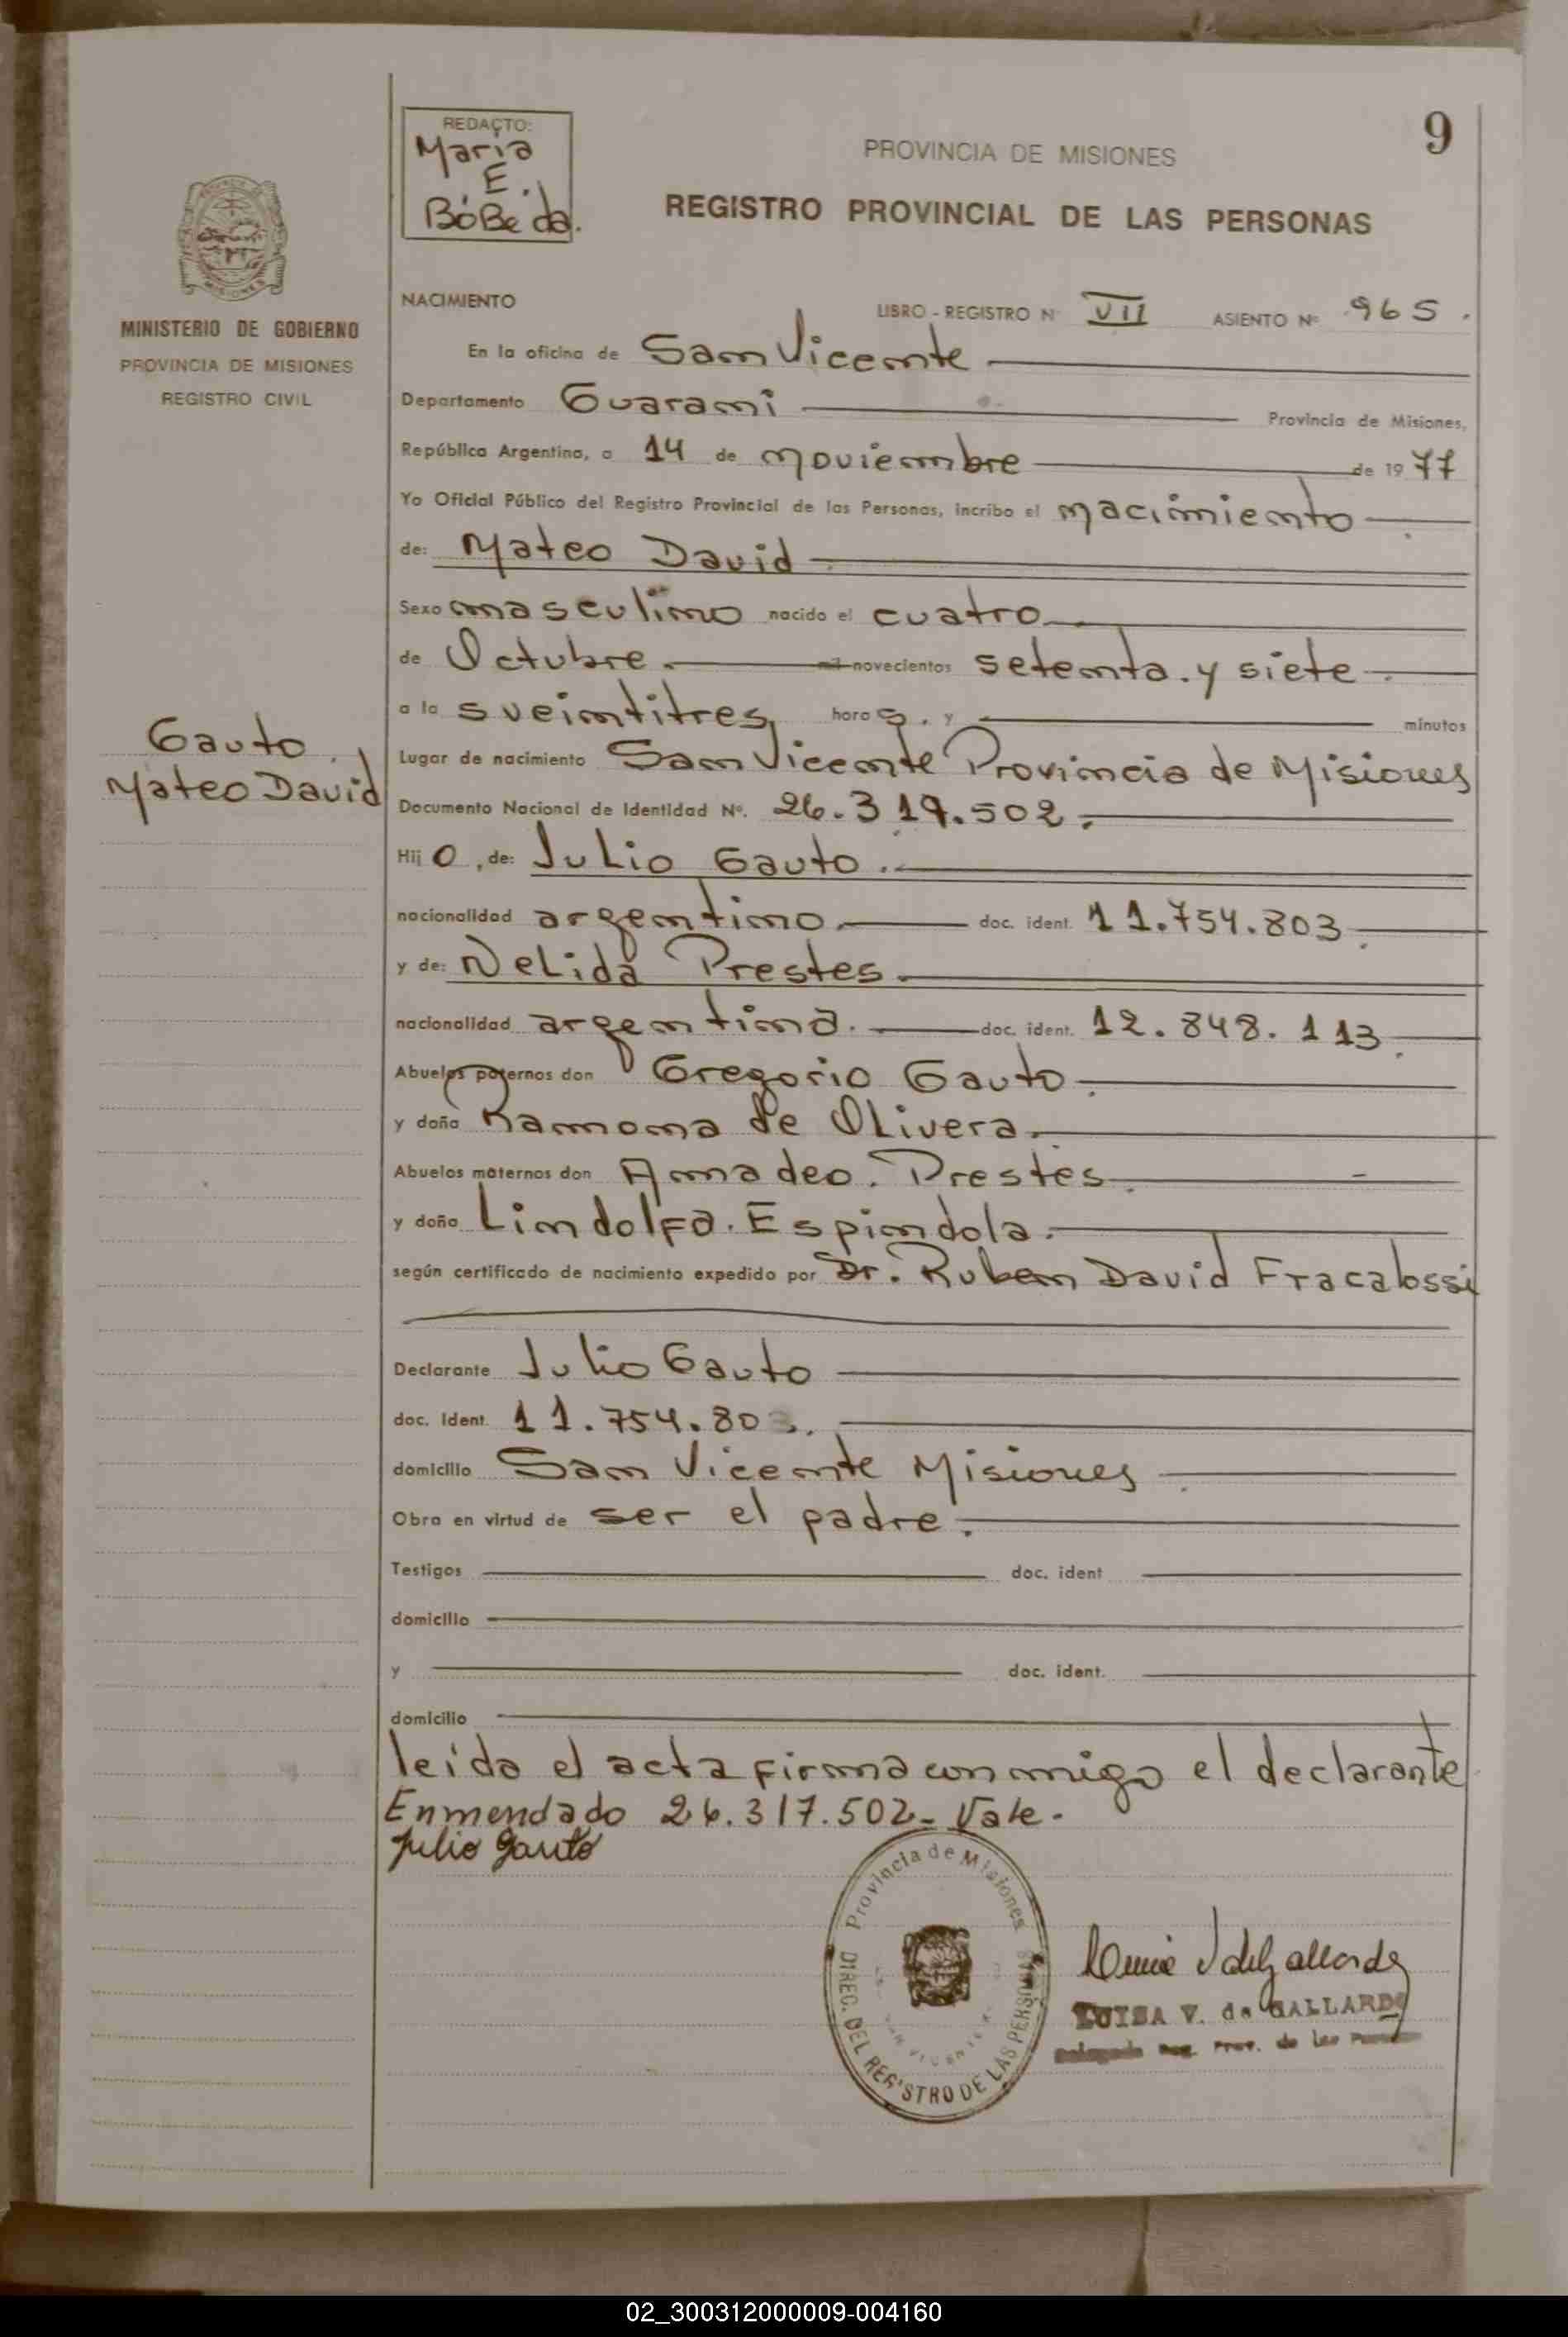 9
REDACTO:
Maria
E.
BóBeda.
PROVINCIA DE MISIONES
REGISTRO PROVINCIAL DE LAS PERSONAS
MINISTERIO DE GOBIERNO
PROVINCIA DE MISIONES
REGISTRO CIVIL
NACIMIENTO LIBRO - REGISTRO N VII ASIENTO Nº 965.
En la oficina de San Vicente
Departamento Guarani Provincia de Misiones,
República Argentina, a 14 de noviembre de 1977
Yo Oficial Público del Registro Provincial de las Personas, incribo el nacimiento
de: Mateo David
Sexo masculino nacido el cuatro
de Octubre. mil novecientos setenta. y siete
a la sveintitres horas. y minutos
Gauto
Mateo David
Lugar de nacimiento San Vicente Provincia de Misiones
Documento Nacional de Identidad Nº. 26.317.502.
Hijo, de: Julio Gauto.
nacionalidad argentino doc. ident. 11.754.803
y de: NeLida Prestes.
nacionalidad argentina. doc. ident. 12.848.113
Abuelos paternos don Gregorio Gauto
y doña Ramona de Olivera.
Abuelos maternos don Amadeo. Prestes
y doña Lindolfa. Espindola.
según certificado de nacimiento expedido por Dr. Ruben David Fracalossi
Declarante Julio Gauto
doc. Ident. 11.754.803.
domicilio San Vicente Misiones
Obra en virtud de ser el padre.
Testigos doc. ident
domicilio
y doc. ident.
domicilio
leída el acta firma con migo el declarante
Enmendado 26.317.502- Vale.
Julio Gauto
Provincia de Misiones
DIREC. DEL REGISTRO DE LAS PERSONAS
SAN VICENTE
LUISA V. de GALLARDO
Delegada Reg. Prov. de las Personas
02_300312000009-004160